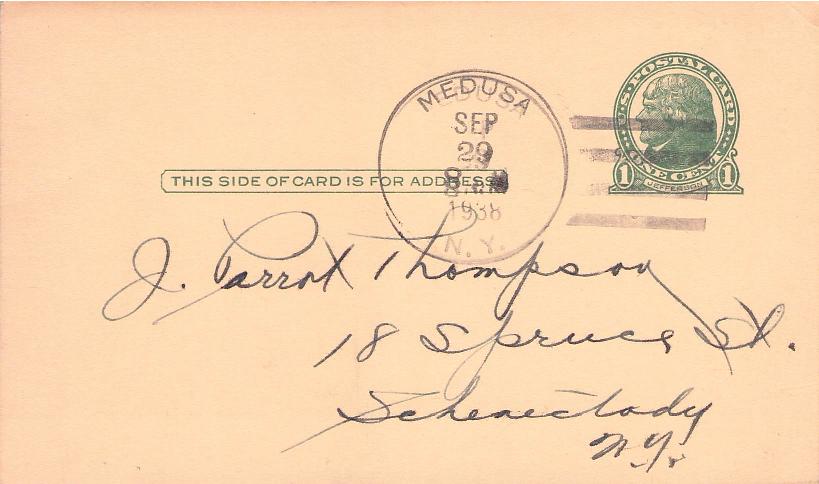 MEDUSA
SEP
29
1938
N.Y.
U.S. POSTAL CARD
ONE CENT
1 JEFFERSON 1
THIS SIDE OF CARD IS FOR ADDRESS
J. Parrot Thompson
18 Spruce St.
Schenectady
N.Y.